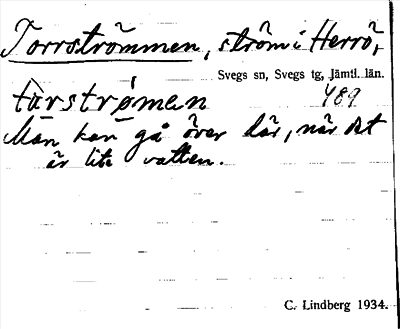 Torrströmmen, ström i Herrö,
Svegs sn, Svegs tg, Jämtl. län.
tàrstrǿmen 489
Man kan gå över där, när det
är lite vatten.
C. Lindberg 1934.